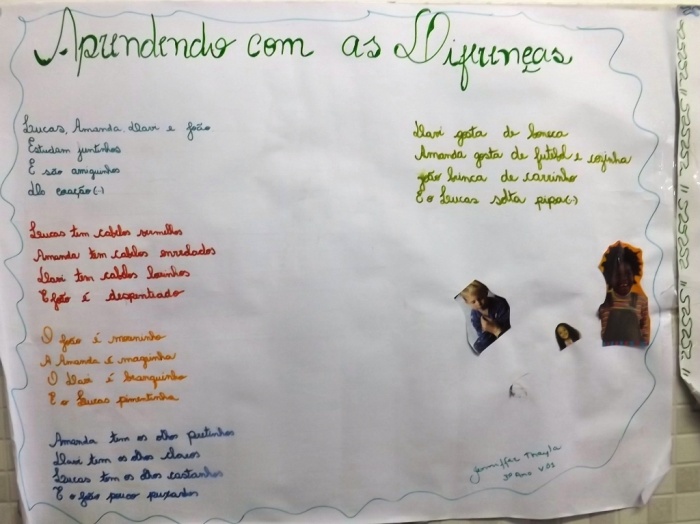 Aprendendo com as Diferenças
Lucas, Amanda, Davi e João
Estudam juntinhos
E são amiguinhos
Do coração (..)
Lucas tem cabelos vermelhos
Amanda tem cabelos enrolados
Davi tem cabelos lourinhos
E João é despentiado
O João é moreninho
A Amanda é magrinha
O Davi é branquinho
E o Lucas pimentinha
Amanda tem os olhos pretinhos
Davi tem os olhos claros
Lucas tem os olhos castanhos
E o João pouco puxados
Davi gosta de boneca
Amanda gosta de futebol e cozinha
João brinca de carrinho
E o Lucas solta pipa (..)
3º ano V.01